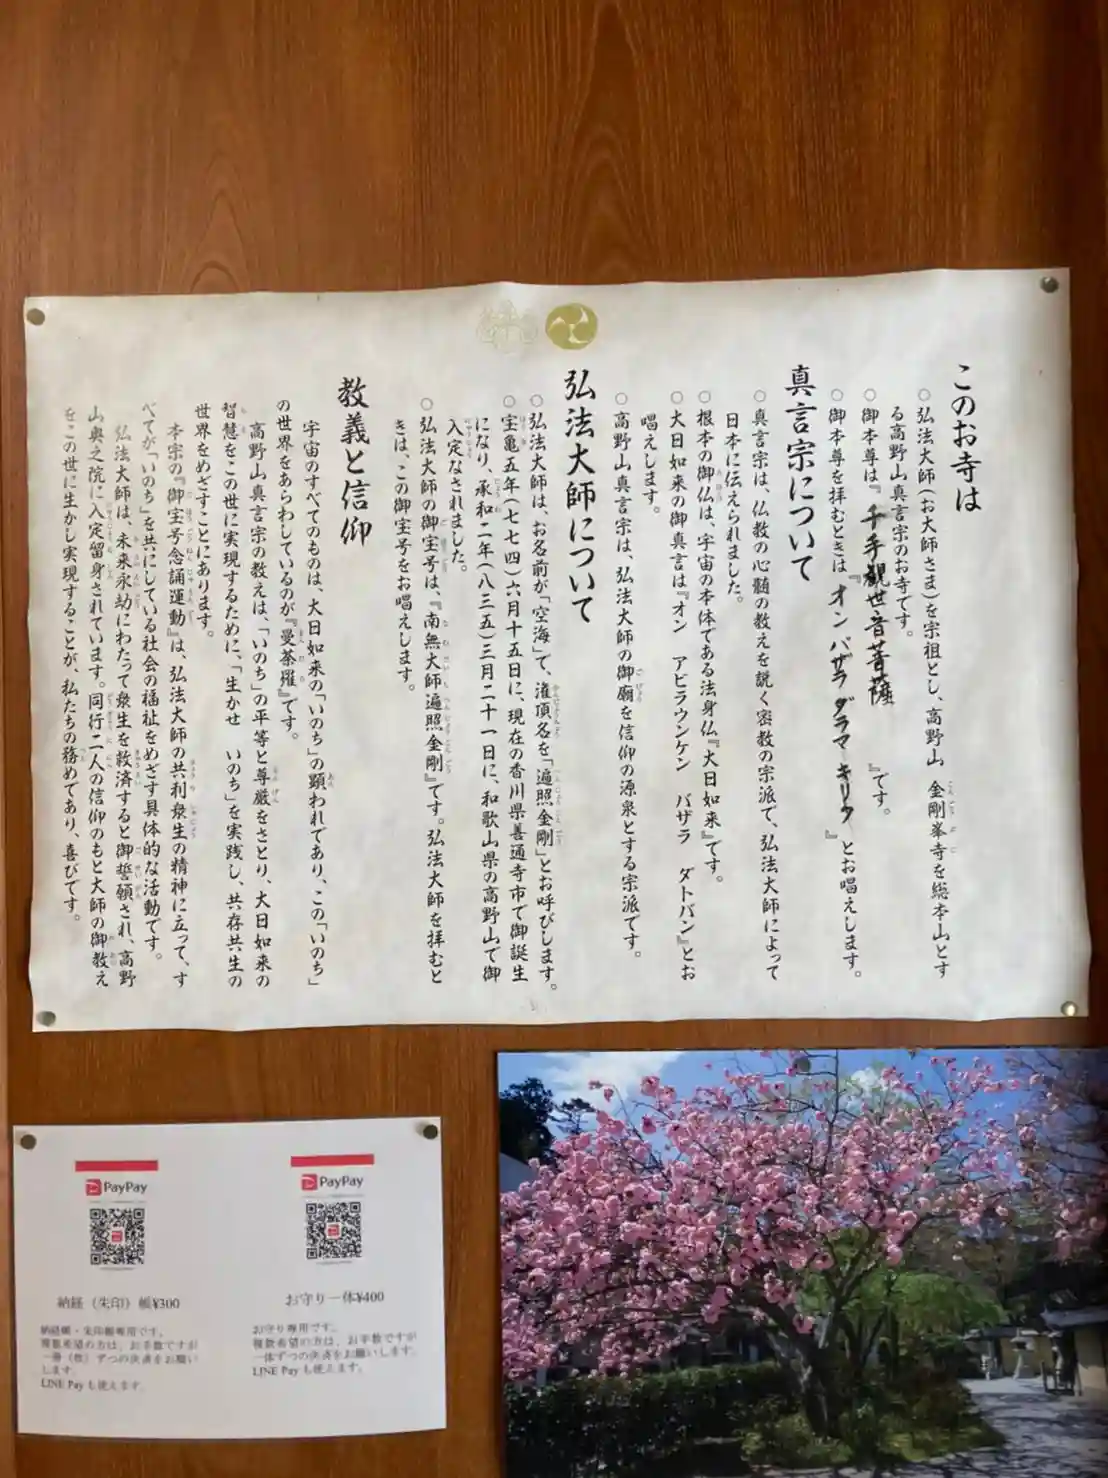 このお寺は
○弘法大師(お大師さま)を宗祖とし、高野山 金剛峯寺を総本山とす
る高野山真言宗のお寺です。
○御本尊は『千手観世音菩薩』です。
○御本尊を拝むときは『オン バザラ ダラマ キリク』とお唱えします。
真言宗について
○真言宗は、仏教の心髄の教えを説く密教の宗派で、弘法大師によって
日本に伝えられました。
○根本の御仏は、宇宙の本体である法身仏『大日如来』です。
○大日如来の御真言は『オン アビラウンケン バザラ ダトバン』とお
唱えします。
○高野山真言宗は、弘法大師の御廟を信仰の源泉とする宗派です。
弘法大師について
○弘法大師は、お名前が「空海」で、灌頂名を「遍照金剛」とお呼びします。
○宝亀五年(七七四)六月十五日に、現在の香川県善通寺市で御誕生
になり、承和二年(八三五)三月二十一日に、和歌山県の高野山で御
入定なされました。
○弘法大師の御宝号は、『南無大師遍照金剛』です。弘法大師を拝むと
きは、この御宝号をお唱えします。
教義と信仰
宇宙のすべてのものは、大日如来の「いのち」の顕われであり、この「いのち」
の世界をあらわしているのが『曼荼羅』です。
高野山真言宗の教えは、「いのち」の平等と尊厳をさとり、大日如来の
智慧をこの世に実現するために、「生かせ いのち」を実践し、共存共生の
世界をめざすことにあります。
本宗の『御宝号念誦運動』は、弘法大師の共利衆生の精神に立って、す
べてが「いのち」を共にしている社会の福祉をめざす具体的な活動です。
弘法大師は、未来永劫にわたって衆生を救済すると御誓願され、高野
山奥之院に入定留身されています。同行二人の信仰のもと大師の御教え
をこの世に生かし実現することが、私たちの務めであり、喜びです。
PayPay
納経(朱印)帳¥300
納経帳・朱印帳専用です。
複数希望の方は、お手数ですが
一冊(枚)ずつの決済をお願い
します。
LINE Payも使えます。
PayPay
お守り一体¥400
お守り専用です。
複数希望の方は、お手数ですが
一体ずつの決済をお願いします。
LINE Payも使えます。